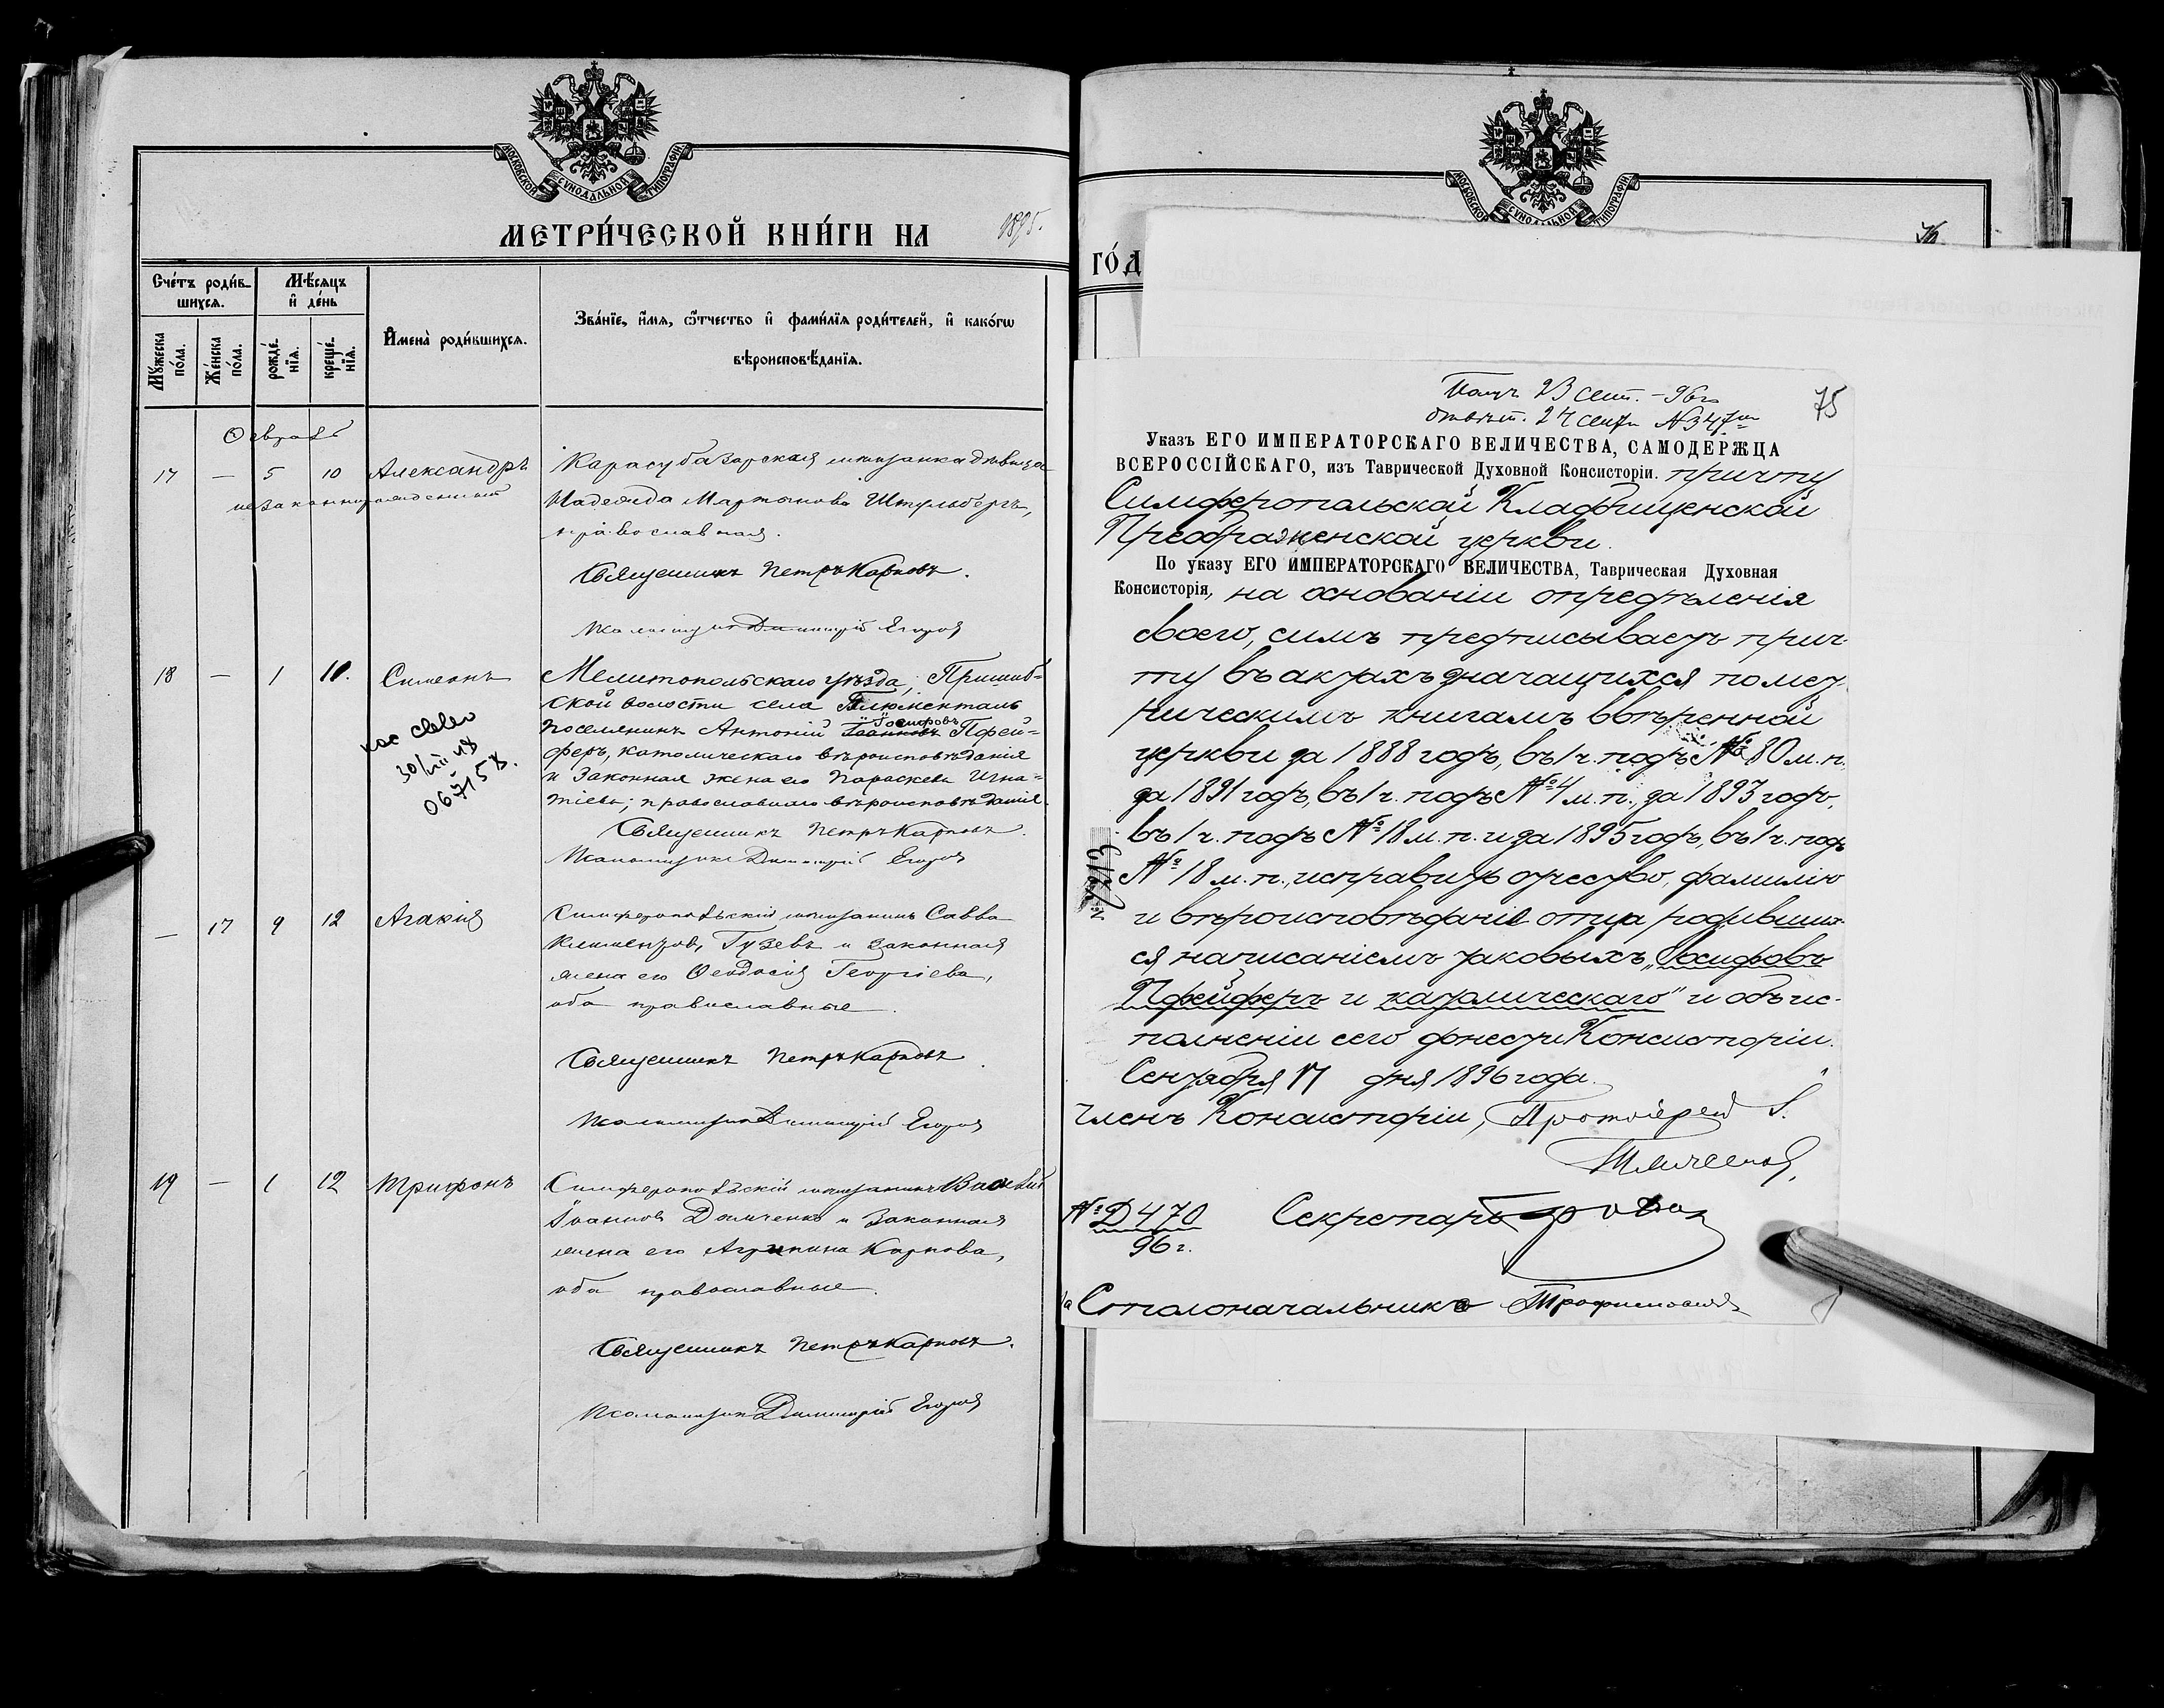 МОСКОВСКОЙ СѴНОДАЛЬНОЙ ТИПОГРАФІИ
МЕТРИ́ЧЕСКОЙ КНИ́ГИ НА 1895.
Сче́тъ роди́в-
шихсѧ.
Мѣ́сѧцъ
и҆ де́нь
Мꙋ́жеска
по́ла.
Же́нска
по́ла.
рожде́-
нїѧ.
креще́-
нїѧ.
И҆мена̀ роди́вшихсѧ.
Зва́нїе, и҆́мѧ, ѻ҆́тчество и҆ фами́лїѧ роди́телей, и҆ како́гѡ
вѣроисповѣ́данїѧ.
Февраль
17 — 5 10 Александръ
незаконнорожденный
Карасубазарская мѣщанка дѣвица
Надежда Мартынова Штульбергъ,
православная.
Священникъ Петръ Карповъ.
Псаломщикъ Димитрій Егоров
18 — 1 10. Симеонъ
30/VIII 48
067158.
Мелитопольскаго уѣзда, Пришиб=
ской волости села Блюменталь
поселянинъ Антоній Іоанновъ Іосифовъ Пфей=
феръ, католическаго вѣроисповѣданія
и законная жена его Параскева Игна=
тіева; православнаго вѣроисповѣданія.
Священникъ Петръ Карповъ.
Псаломщикъ Димитрій Егоров
— 17 9 12 Агафія
Симферопольскій мѣщанинъ Савва
Климентов, Гузевъ и законная
жена его Феодосія Георгіева,
оба православные.
Священникъ Петръ Карповъ.
Псаломщикъ Димитрій Егоров
19 — 1 12 Трифонъ
Симферопольскій мѣщанинъ Василій
Іоаннов Демченко и законная
жена его Агрипина Карпова,
оба православные.
Священникъ Петръ Карповъ.
Псаломщикъ Димитрій Егоров
МОСКОВСКОЙ СѴНОДАЛЬНОЙ ТИПОГРАФІИ
76
ГО́Д
Получ 23 сент. – 96 г.
отвѣт. 24 сент. № 347
75
Указъ ЕГО ИМПЕРАТОРСКАГО ВЕЛИЧЕСТВА, САМОДЕРЖЦА
ВСЕРОССІЙСКАГО, изъ Таврической Духовной Консисторіи. причту
Симферопольской Кладбищенской
Преображенской церкви.
По указу ЕГО ИМПЕРАТОРСКАГО ВЕЛИЧЕСТВА, Таврическая Духовная
Консисторія, на основаніи опредѣленія
своего, симъ предписываетъ прич-
ту въ актахъ значащихся по мет-
рическимъ книгамъ ввѣренной
церкви за 1888 годъ, въ 1 ч. подъ № 80 м. п.
за 1891 годъ, въ 1 ч. подъ № 4 м. п., за 1893 годъ,
въ 1 ч. подъ № 18 м. п. и за 1895 годъ, въ 1 ч. подъ
№ 18 м. п., исправить отчество, фамилію
и вѣроисповѣданіе отца родивших-
ся написаніемъ таковыхъ „Іосифовъ
Пфейферъ и католическаго" и объ ис-
полненіи сего донести Консисторіи.
Сентября 17 дня 1896 года.
Членъ Консисторіи, Протоіерей
№ Д 470
96 г.
Секретарь
Столоначальникъ